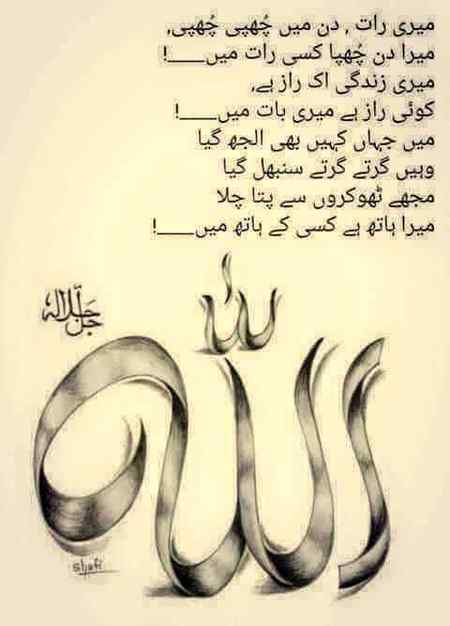 میری رات , دن میں چُھپی چُھپی,
میرا دن چُھپا کسی رات میں____!
میری زندگی اک راز ہے,
کوئی راز ہے میری بات میں____!
میں جہاں کہیں بھی الجھ گیا
وہیں گرتے گرتے سنبھل گیا
مجھے ٹھوکروں سے پتا چلا
میرا ہاتھ ہے کسی کے ہاتھ میں____!
جَلَّ جَلَالُهٗ
الله
shafi